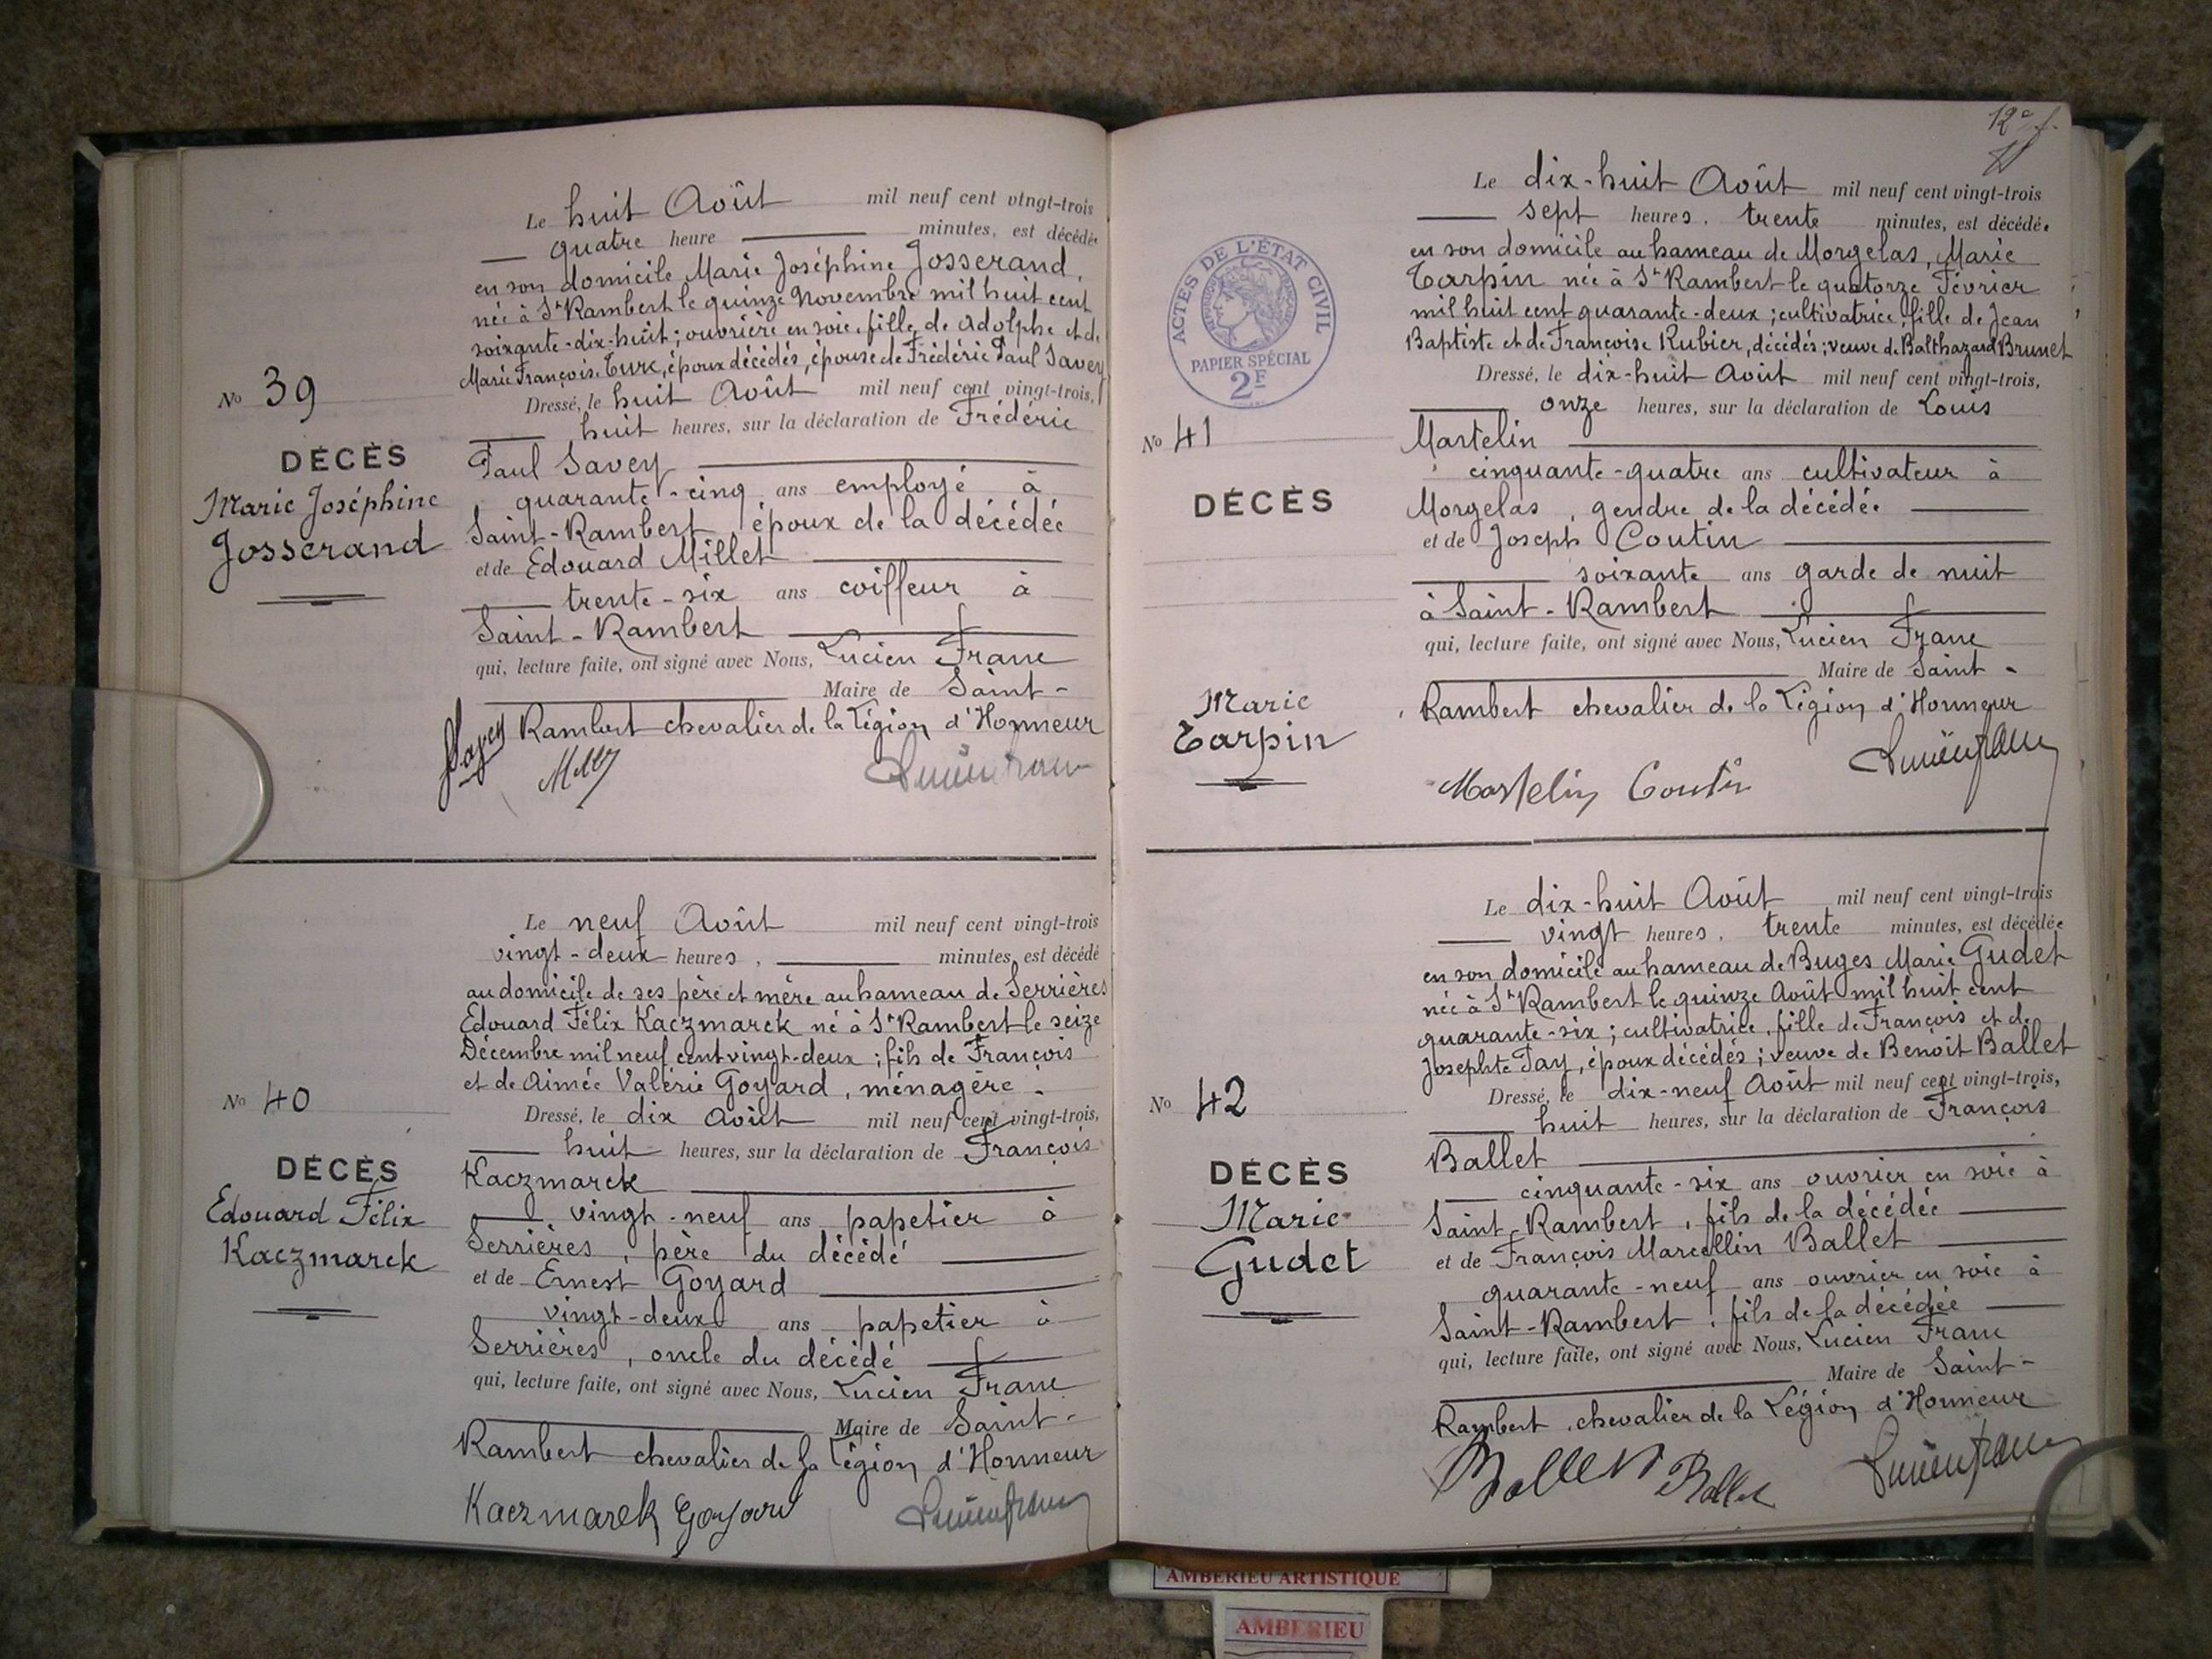 Le huit Août mil neuf cent vingt-trois
quatre heure minutes, est décédée
en son domicile Marie Joséphine Josserand,
née à St Rambert le quinze Novembre mil huit cent
soixante-dix-huit ; ouvrière en soie, fille de Adolphe et de
Marie Françoise Turc, époux décédés, épouse de Frédéric Paul Savey
No 39
DÉCÈS
Marie Joséphine
Josserand
Dressé, le huit Août mil neuf cent vingt-trois,
huit heures, sur la déclaration de Frédéric
Paul Savey
quarante-cinq ans employé à
Saint-Rambert, époux de la décédée
et de Edouard Millet
trente-six ans coiffeur à
Saint-Rambert
qui, lecture faite, ont signé avec Nous, Lucien Franc
Maire de Saint-
Rambert chevalier de la Légion d'Honneur
Savey
Le neuf Août mil neuf cent vingt-trois
vingt-deux heures, minutes, est décédé
au domicile de ses père et mère au hameau de Serrières
Edouard Félix Kaczmarek né à St Rambert le seize
Décembre mil neuf cent vingt-deux ; fils de François
et de Aimée Valérie Goyard, ménagère.
No 40
DÉCÈS
Edouard Félix
Kaczmarek
Dressé, le dix Août mil neuf cent vingt-trois,
huit heures, sur la déclaration de François
Kaczmarek
vingt-neuf ans papetier à
Serrières, père du décédé
et de Ernest Goyard
vingt-deux ans papetier à
Serrières, oncle du décédé
qui, lecture faite, ont signé avec Nous, Lucien Franc
Maire de Saint-
Rambert chevalier de la Légion d'Honneur
Kaczmarek Goyard
12e f.
Le dix-huit Août mil neuf cent vingt-trois
sept heures, trente minutes, est décédée
en son domicile au hameau de Morgelas, Marie
Tarpin née à St Rambert le quatorze Février
mil huit cent quarante-deux ; cultivatrice, fille de Jean
Baptiste et de Françoise Rubier, décédés ; veuve de Balthazard Brunet
ACTES DE L'ÉTAT CIVIL
PAPIER SPÉCIAL
2F
No 41
DÉCÈS
Marie
Tarpin
Dressé, le dix-huit Août mil neuf cent vingt-trois,
onze heures, sur la déclaration de Louis
Martelin
cinquante-quatre ans cultivateur à
Morgelas, gendre de la décédée
et de Joseph Coutin
soixante ans garde de nuit
à Saint-Rambert
qui, lecture faite, ont signé avec Nous, Lucien Franc
Maire de Saint-
Rambert chevalier de la Légion d'Honneur
Martelin Coutin
Le dix-huit Août mil neuf cent vingt-trois
vingt heures, trente minutes, est décédée
en son domicile au hameau de Buges Marie Gudet
née à St Rambert le quinze Août mil huit cent
quarante-six ; cultivatrice, fille de François et de
Josephte Tay, époux décédés ; veuve de Benoît Ballet
No 42
DÉCÈS
Marie
Gudet
Dressé, le dix-neuf Août mil neuf cent vingt-trois,
huit heures, sur la déclaration de François
Ballet
cinquante-six ans ouvrier en soie à
Saint-Rambert, fils de la décédée
et de François Marcellin Ballet
quarante-neuf ans ouvrier en soie à
Saint-Rambert, fils de la décédée
qui, lecture faite, ont signé avec Nous, Lucien Franc
Maire de Saint-
Rambert, chevalier de la Légion d'Honneur
Ballet Ballet
AMBERIEU ARTISTIQUE
AMBERIEU